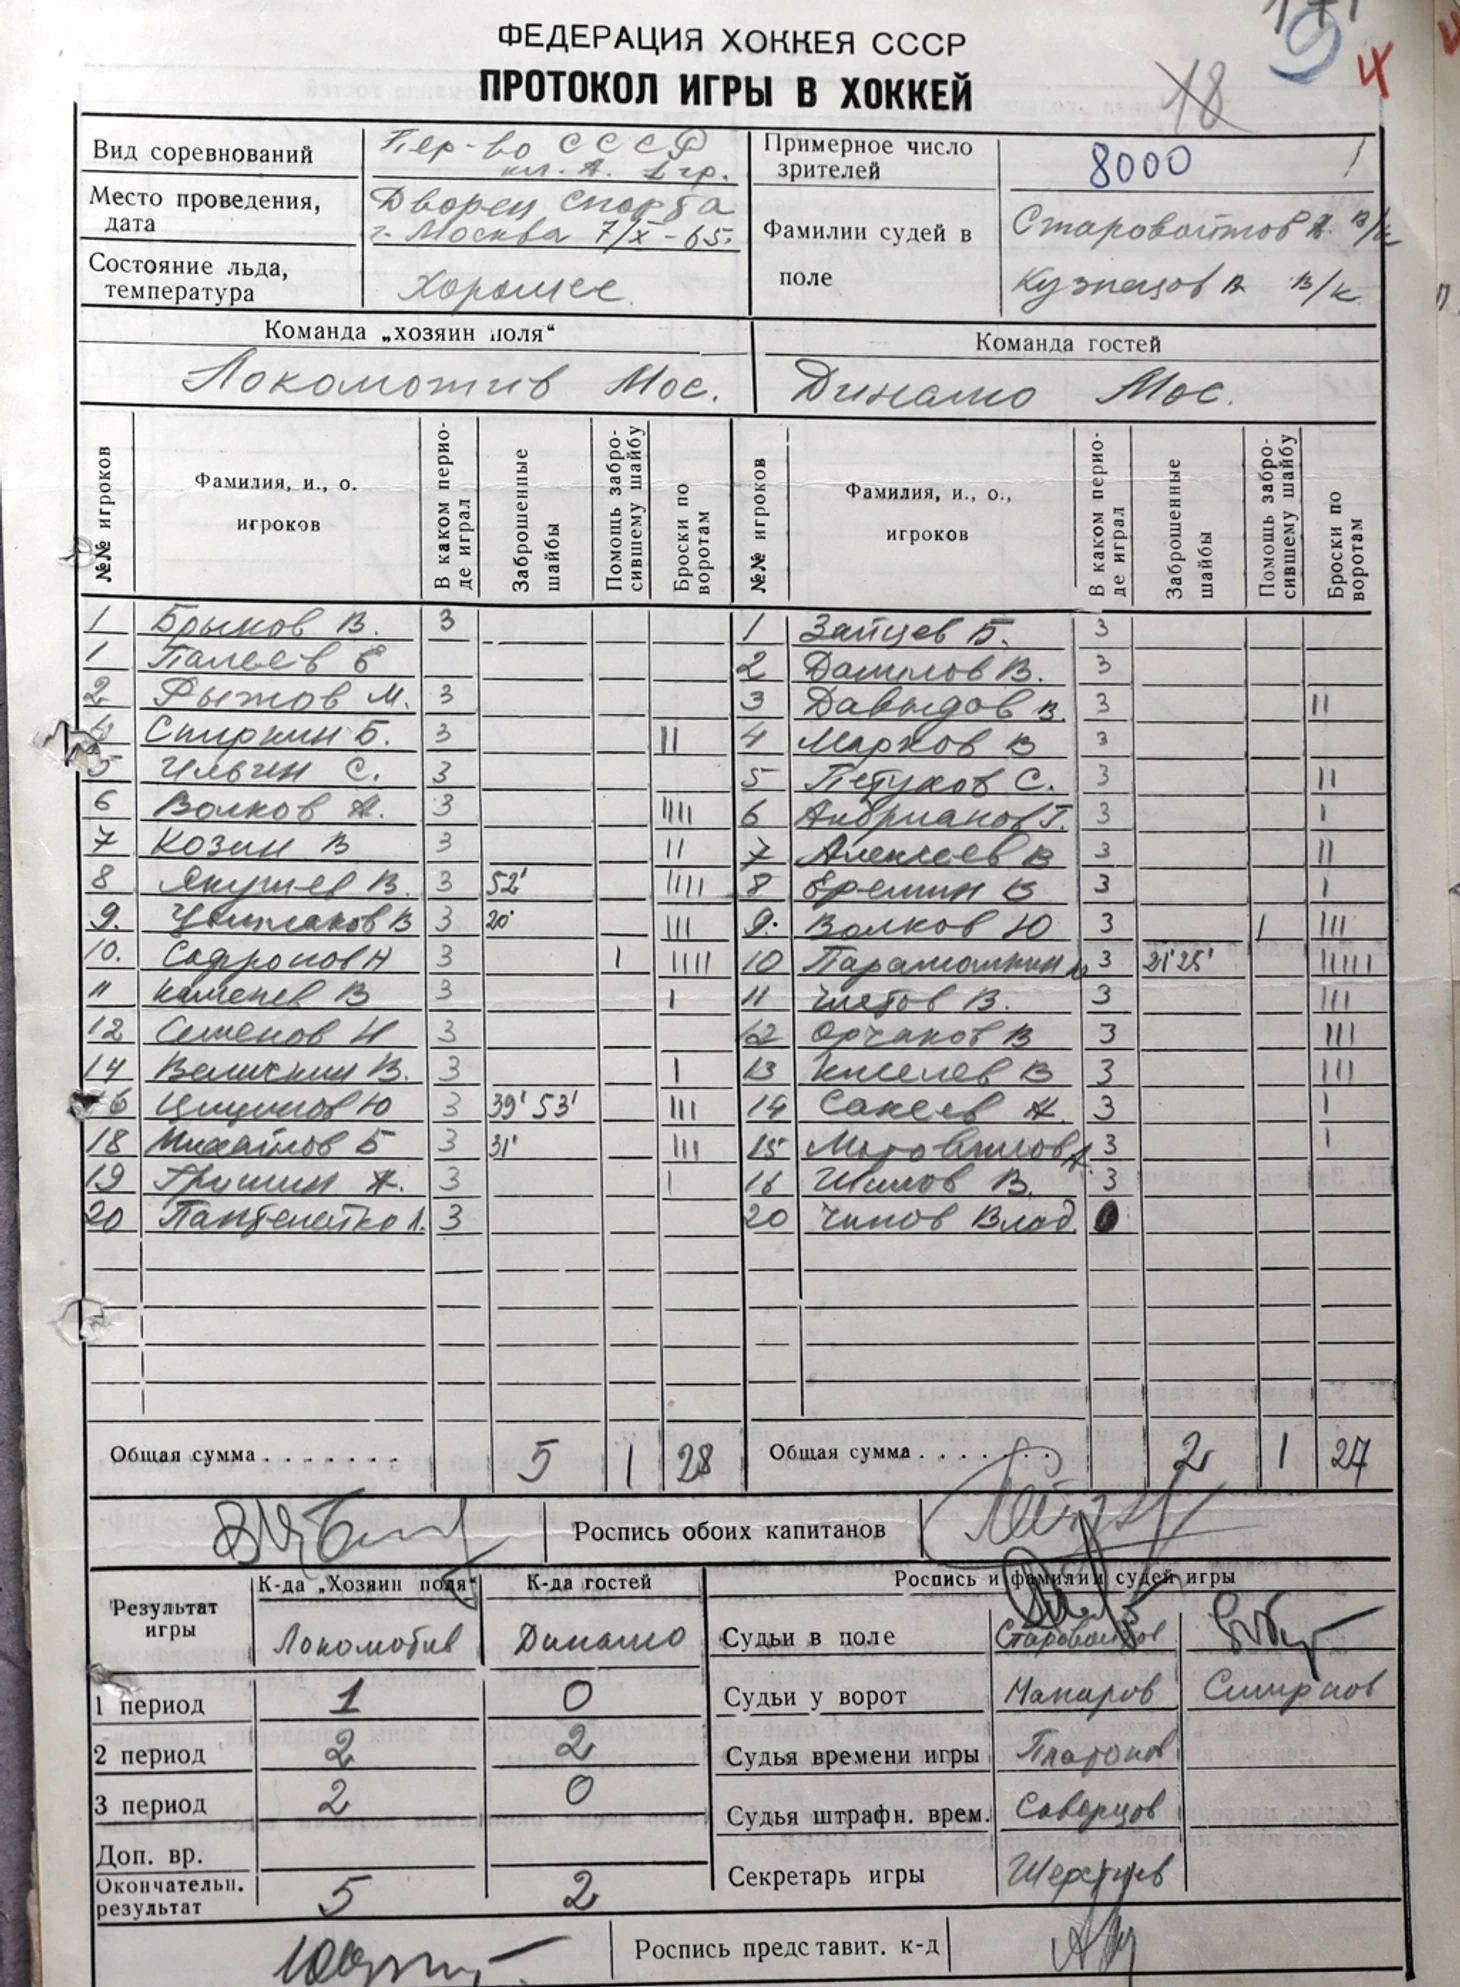 ФЕДЕРАЦИЯ ХОККЕЯ СССР
ПРОТОКОЛ ИГРЫ В ХОККЕЙ
18
9
4
Вид соревнований Пер-во СССР кл. А. 1 гр.
Примерное число зрителей 8000
Место проведения, дата Дворец спорта г. Москва 7/X-65.
Фамилии судей в поле Старовойтов А. в/к
Кузнецов В в/к
Состояние льда, температура Хорошее
Команда „хозяин поля“ Команда гостей
Локомотив Мос. Динамо Мос.
№№ игроков Фамилия, и., о. игроков В каком периоде играл Заброшенные шайбы Помощь забросившему шайбу Броски по воротам №№ игроков Фамилия, и., о., игроков В каком периоде играл Заброшенные шайбы Помощь забросившему шайбу Броски по воротам
1 Брыков В. 3 1 Зайцев Б. 3
1 Палеев Е 2 Данилов В. 3
2 Рыжов М. 3 3 Давыдов В. 3 II
4 Спиркин Б. 3 II 4 Марков В 3
5 Ильин С. 3 5 Петухов С. 3 II
6 Волков А. 3 IIII 6 Андрианов Г. 3 I
7 Козин В 3 II 7 Алексеев В 3 II
8 Якушев В. 3 52' IIII 8 Еремин В 3 I
9. Цыплаков В 3 20' III 9. Волков Ю 3 I III
10. Сафронов Н 3 I IIII 10 Парамошкин 3 21' 25' IIIII
11 Каменев В 3 I 11 Чистов В. 3 III
12 Семенов Н 3 12 Орчаков В 3 III
14 Величкин В. 3 I 13 Киселев В 3 III
16 Цицинов Ю 3 39' 53' III 14 Сакеев А. 3 I
18 Михайлов Б 3 31' III 15 Мотовилов А. 3 I
19 Гришин А. 3 I 16 Шилов В. 3
20 Пантелейко А. 3 20 Чинов Влад.
Общая сумма 5 1 28 Общая сумма 2 1 27
Роспись обоих капитанов
Результат игры К-да „Хозяин поля“ К-да гостей Роспись и фамилии судей игры
Локомотив Динамо Судьи в поле Старовойтов
1 период 1 0 Судьи у ворот Макаров Смирнов
2 период 2 2 Судья времени игры Платонов
3 период 2 0 Судья штрафн. врем. Саворцов
Доп. вр.
Окончательн. результат 5 2 Секретарь игры
Роспись представит. к-д